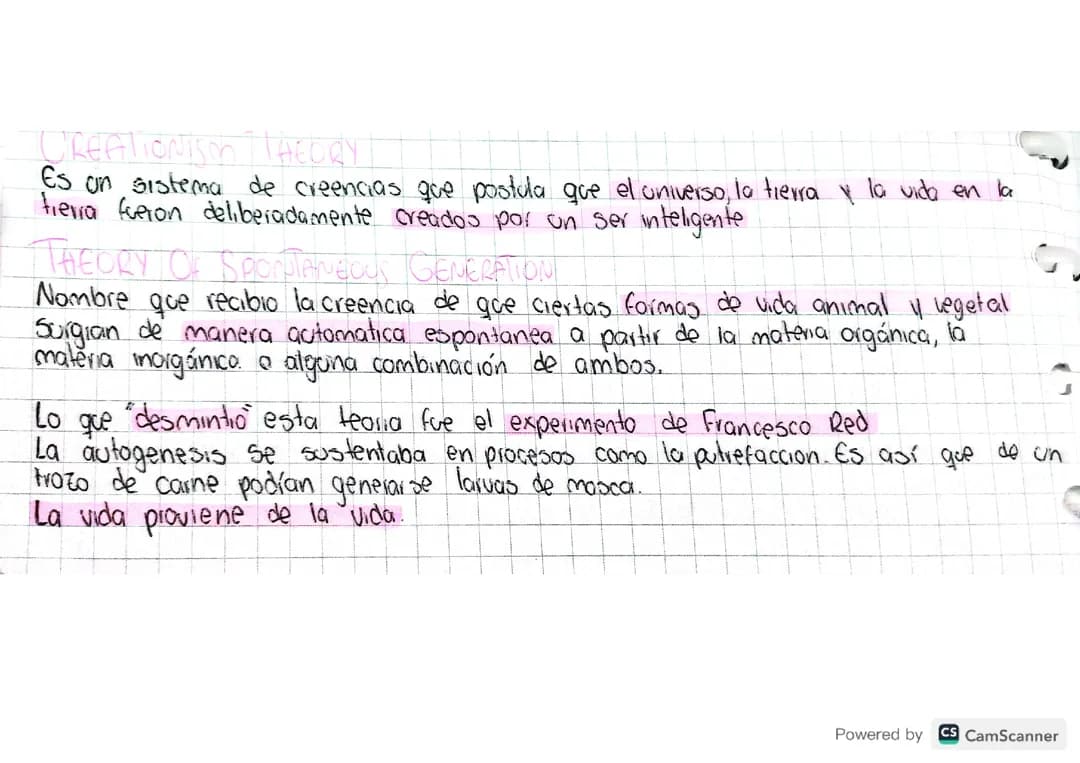 CREATIONISM THEORY
Es un sistema de creencias que postula que el universo, la tierra y la vida en la
tierra fueron deliberadamente creados por un ser inteligente
THEORY OF SPONTANEOUS GENERATION
Nombre que recibio la creencia de que ciertas formas de vida animal y vegetal
surgian de manera automatica espontanea a partir de la materia orgánica, la
materia inorgánica o alguna combinación de ambos.
Lo que "desmintio" esta teoria fue el experimento de Francesco Red
La autogenesis se sustentaba en procesos como la putrefaccion. Es así que de un
trozo de carne podían generarse larvas de mosca.
La vida proviene de la vida.
Powered by CS CamScanner